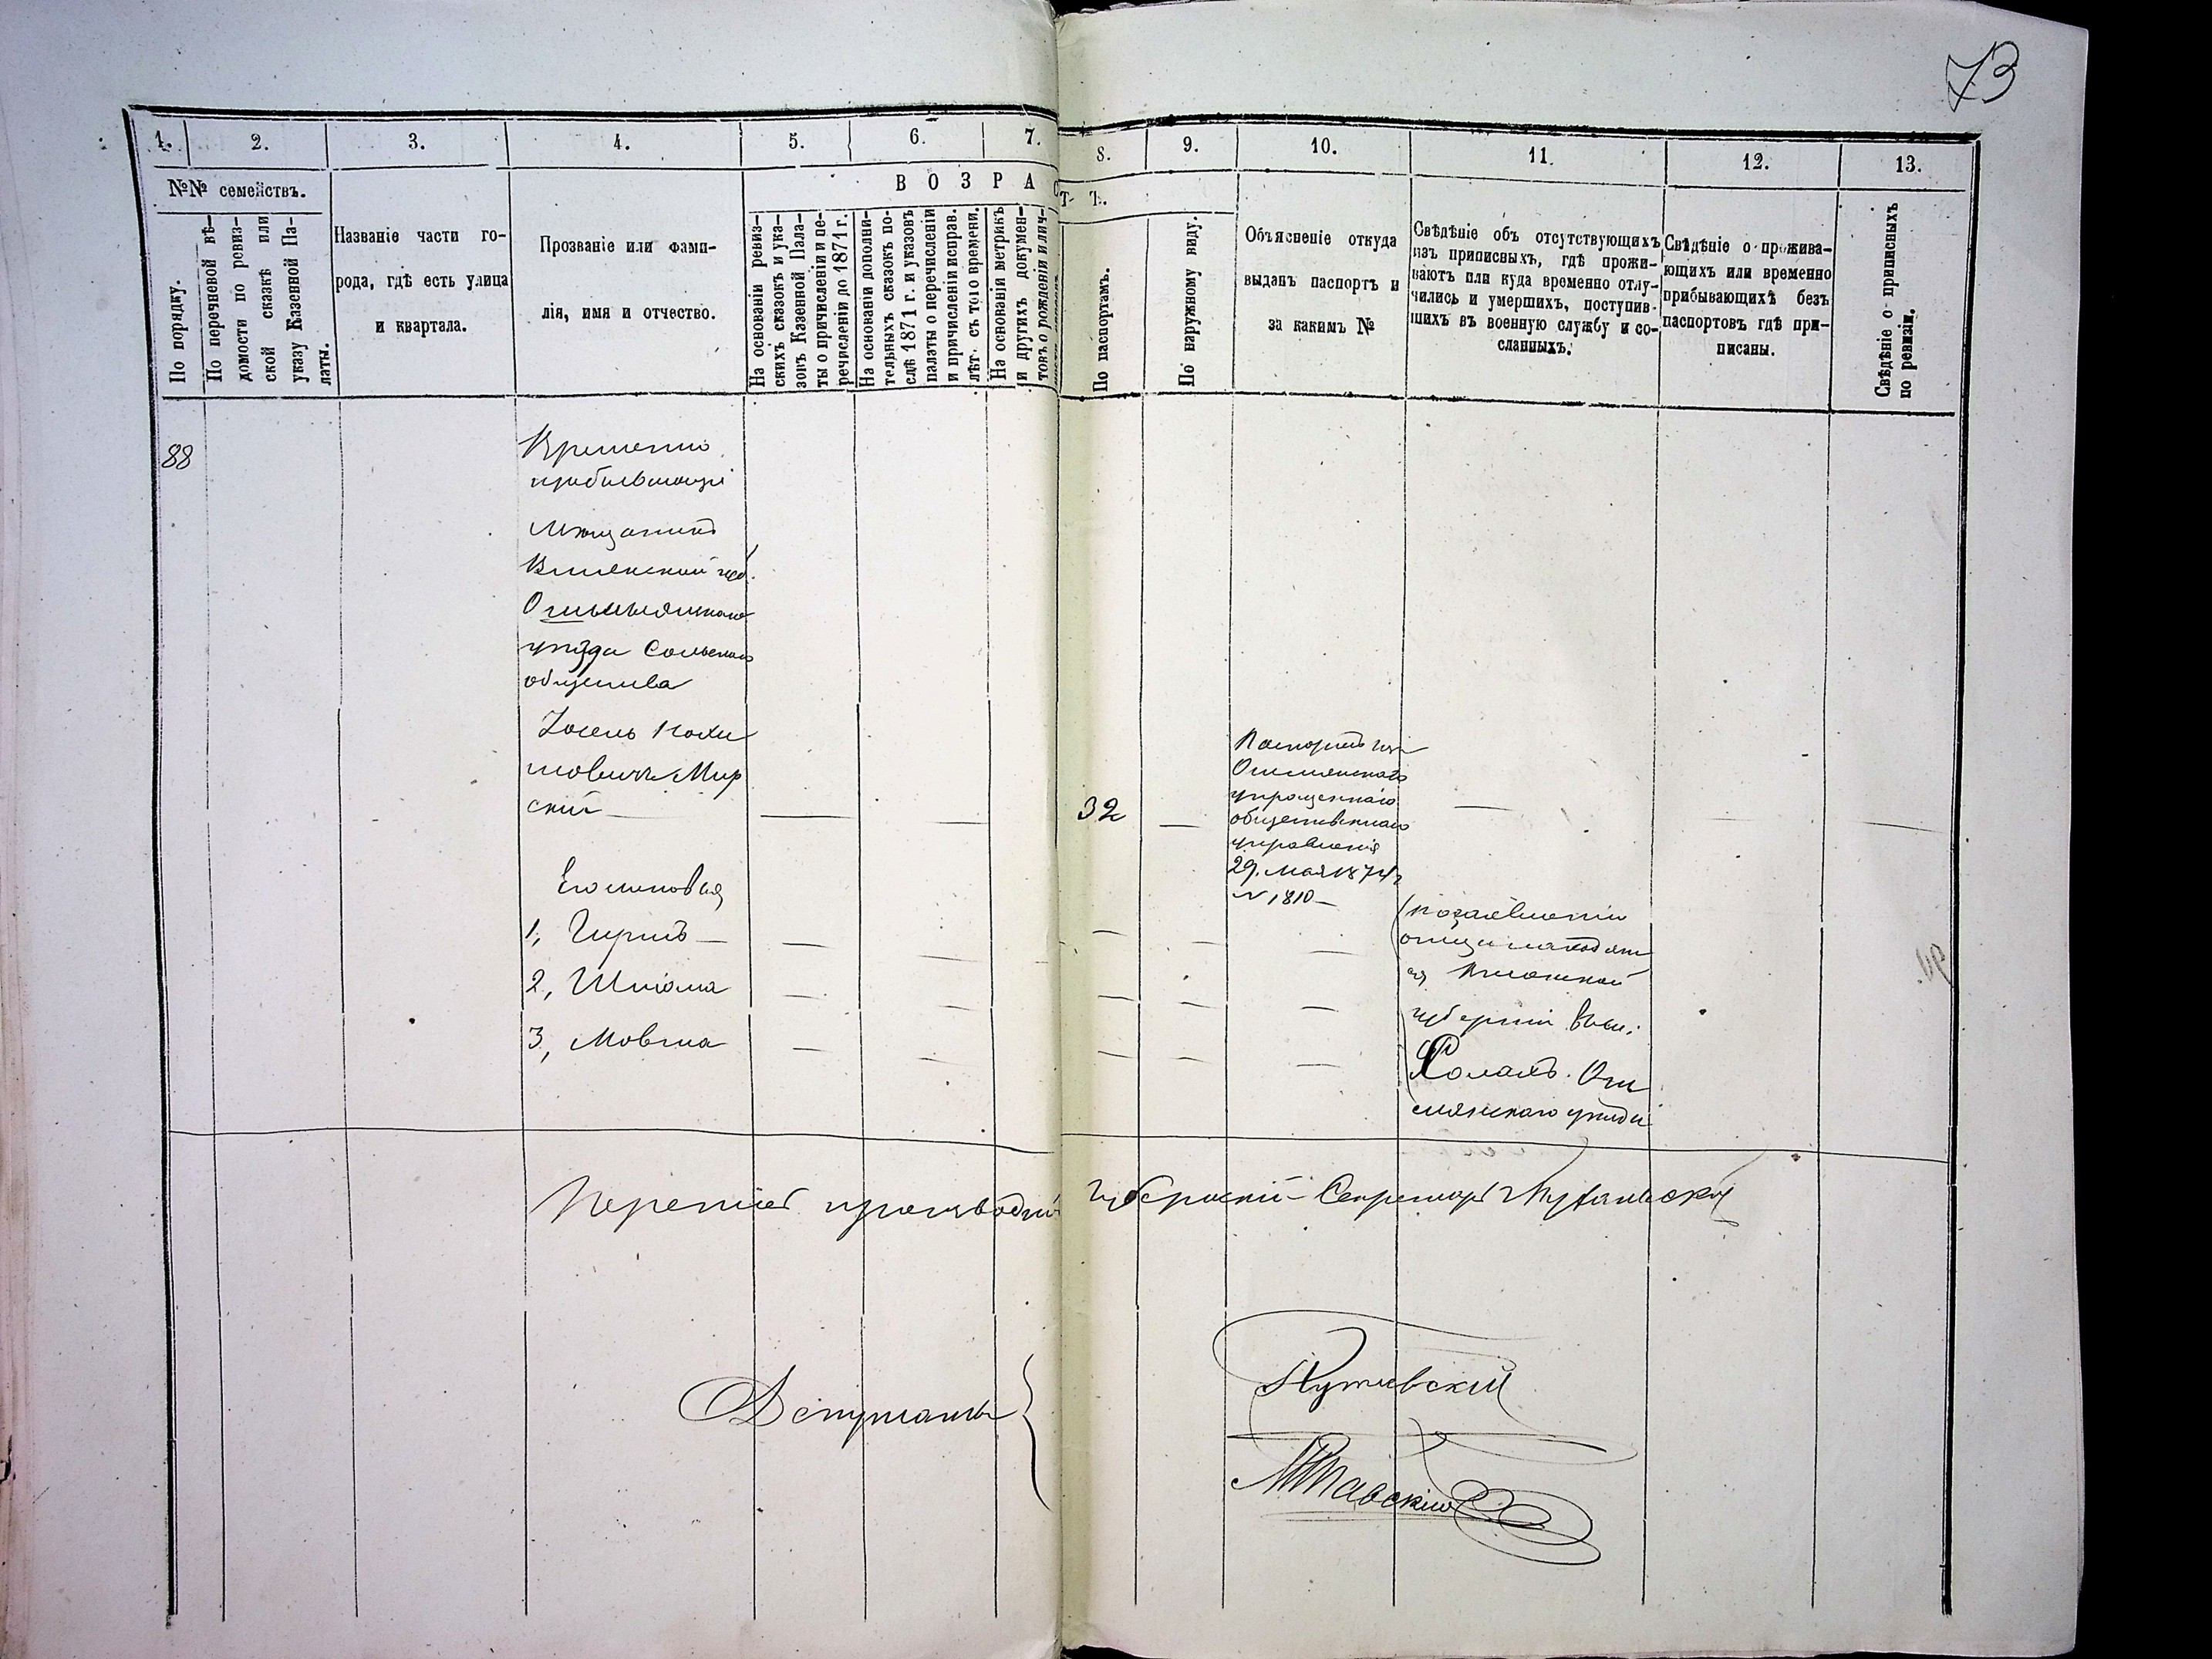 73
1.
2.
3.
4.
5.
6.
7.
8.
9.
10.
11.
12.
13.
№№ семействъ.
По порядку.
По перечневой вѣ-
домости по ревиз-
ской сказкѣ или
указу Казенной Па-
латы.
Названіе части го-
рода, гдѣ есть улица
и квартала.
Прозваніе или фами-
лія, имя и отчество.
ВОЗРАСТ Ъ.
На основаніи ревиз-
скихъ сказокъ и ука-
зовъ Казенной Пала-
ты о причисленіи и пе-
речисленіи до 1871 г.
На основаніи дополни-
тельныхъ сказокъ по-
слѣ 1871 г. и указовъ
палаты о перечисленіи
и причисленіи исправ.
лѣт. съ того времени.
На основаніи метрикъ
и другихъ докумен-
товъ о рожденіи и лич-
По паспортамъ.
По наружному виду.
Объясненіе откуда
выданъ паспортъ и
за какимъ №
Свѣдѣніе объ отсутствующихъ
изъ приписныхъ, гдѣ прожи-
ваютъ или куда временно отлу-
чились и умершихъ, поступив-
шихъ въ военную службу и со-
сланныхъ.
Свѣдѣніе о прожива-
ющихъ или временно
прибывающихъ безъ
паспортовъ гдѣ при-
писаны.
Свѣдѣніе о приписныхъ
по ревизіи.
88
Временно
пребывающіе
Мѣщанинъ
Виленской губ.
Ошмянскаго
уѣзда Сольскаго
общества
Іосель
Мир
скій
32
Паспортъ изъ
Ошмянскаго
упрощеннаго
общественнаго
управленія
29 мая 1874 г
№ 1810
Его сыновья
1, Гиршъ
2, Шліома
3, Мовша
по заявленію
отца находят
ся Виленской
губерніи въ м:
Солахъ Ош
мянскаго уѣзда
Перепись производилъ Губернскій Секретарь
Депутаты